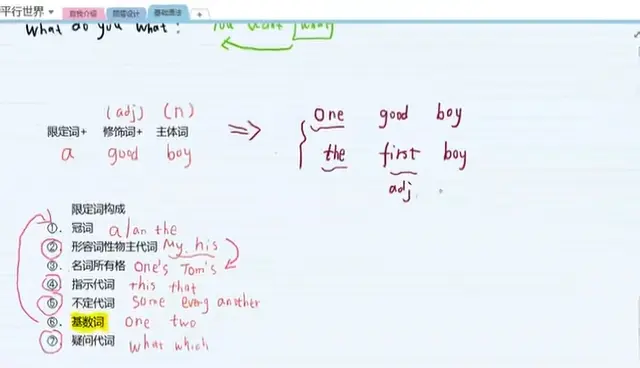 平行世界 自我介绍 课程设计 基础语法 +
What do you what: You want what
(adj) (n)
限定词+ 修饰词+ 主体词 => One good boy
a good boy the first boy
adj.
限定词构成
①. 冠词 a/an the
②. 形容词性物主代词 My his
③. 名词所有格 One's Tom's
④. 指示代词 this that
⑤. 不定代词 some every another
⑥. 基数词 one two
⑦. 疑问代词 what which